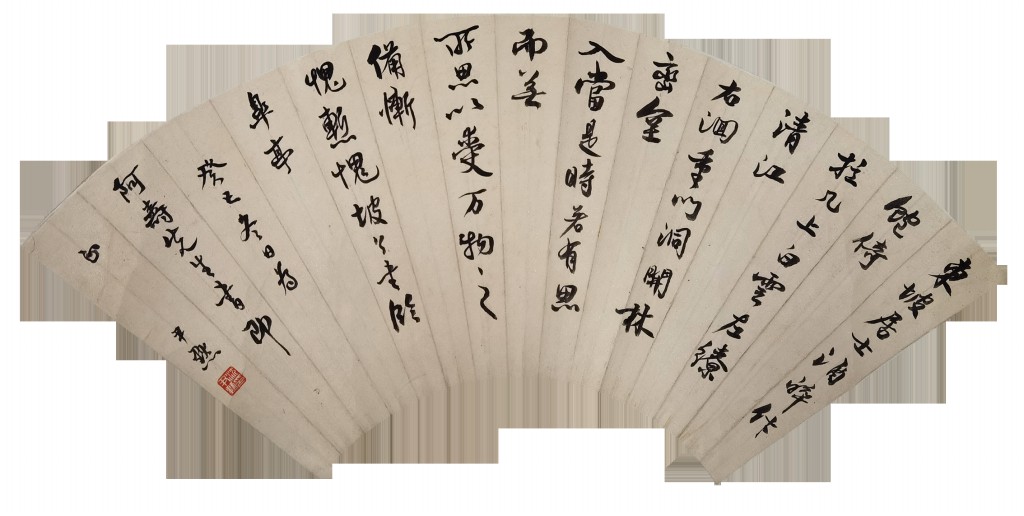 東坡居士酒醉飯
飽倚
於几上白雲左繚
清江
右洄重門洞開林
巒坌
入當是時若有思
而無
所思以受万物之
備慚
愧慙愧坡公書臨
皋亭
癸巳冬日為
阿壽先生書即
正
尹默